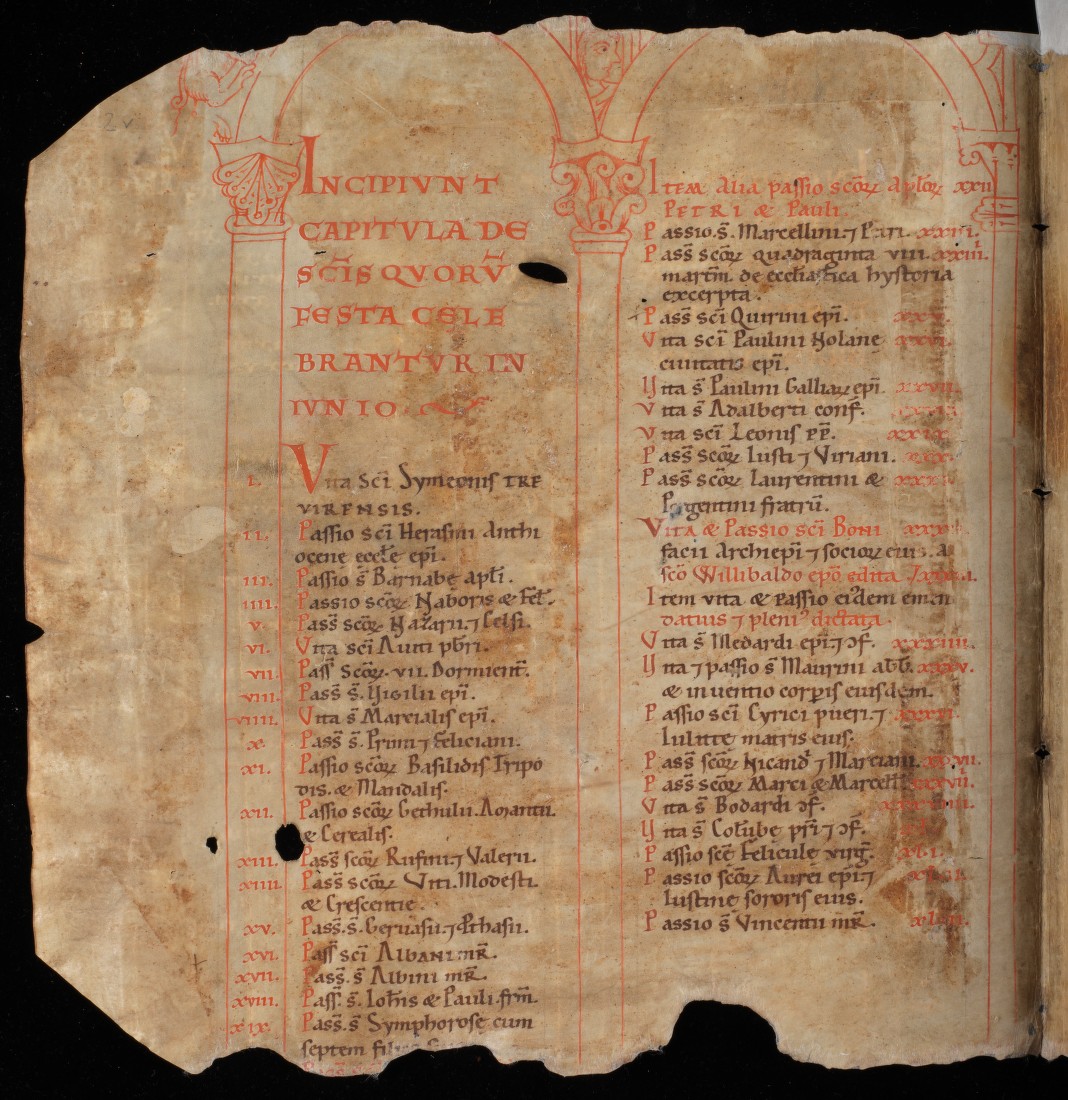 2v
INCIPIVNT
CAPITVLA DE
SCĪS QVORV̄
FESTA CELE
BRANTVR IN
IVNIO
I. Vita Scī Symeonis TRE
VIRENSIS.
II. Passio scī Herasmi Anthi
ocene eccłe epī.
III. Passio s̄ Barnabę apłi.
IIII. Passio scōꝝ Naboris & Fel̄.
V. Pass̄ scōꝝ Nazarii ⁊ Celsi.
VI. Vita scī Auiti pb̄ri.
VII. Pass̄ Scōꝝ .VII. Dormient̄.
VIII. Pass̄ s̄. Vigilii epī.
VIIII. Vita s̄ Marcialis epī.
X. Pass̄ s̄. Primi ⁊ Feliciani.
XI. Passio scōꝝ Basilidis Tripo
dis. & Mandalis.
XII. Passio scōꝝ Gethulii. Amantii.
& Cerealis.
XIII. Pass̄ scōꝝ Rufini ⁊ Valerii.
XIIII. Pass̄ scōꝝ Viti. Modesti
& Crescentie.
XV. Pass̄. s̄. Geruasii ⁊ Pthasii.
XVI. Pass̄ scī Albani mR̄.
XVII. Pass̄. s̄ Albini mR̄.
XVIII. Pass̄. s̄. Ioh̄is & Pauli. frm̄.
XIX. Pass̄. s̄ Symphorose cum
septem
Item alia passio scōꝝ apłoꝝ XXII
PETRI & Pauli.
Passio. s̄. Marcellini ⁊ Petri.
Pass̄ scōꝝ quadraginta VIII. XXIIII.
martm̄ de eccłiastica hystoria
excerpta.
Pass̄ scī Quirini epī.
Vita scī Paulini Nolane XXVI.
ciuitatis epī.
Vita s̄ Paulini Galliaꝝ epī. XXVII.
Vita s̄ Adalberti conf̄.
Vita scī Leonis pp̄. XXIX.
Pass̄ scōꝝ Iusti ⁊ Viriani.
Pass̄ scōꝝ Laurentini &
Pergentini fratrū.
Vita & Passio scī Boni
facii Archiepī ⁊ socioꝝ eius. a
scō Willibaldo epō edita.
Item vita & passio eiꝰdem emen
datius ⁊ pleniꝰ dictata.
Vita s̄ Medardi epī ⁊ ɔf̄. XXXIIII.
Vita ⁊ passio s̄ Maurini abb̄. XXXV.
& inuentio corp̄is eiusdem.
Passio scī Cyrici pueri ⁊ XXXVI.
Iulitte matris eius.
Pass̄ scōꝝ Nicand̄ ⁊ Marciani. XXXVII.
Pass̄ scōꝝ Marci & Marcell̄. XXXVIII.
Vita s̄ Bodardi ɔf̄.
Vita s̄ Colūbę pr̄i ⁊ ɔf̄.
Passio scē Felicule virḡ. XLI.
Passio scōꝝ Aurei epī ⁊
Iustine sororis eius.
Passio s̄ Vincentii mR̄.